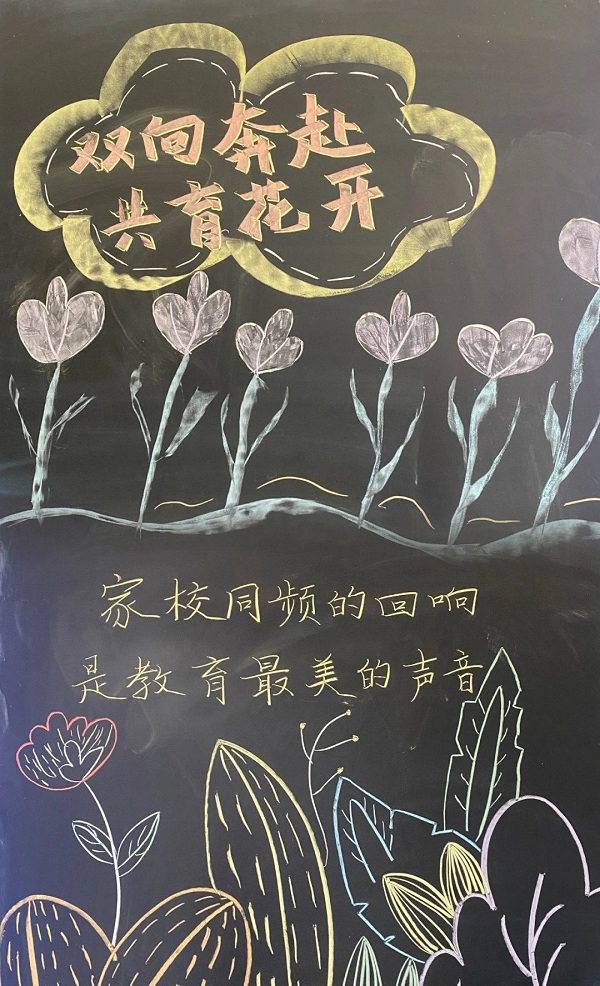 双向奔赴
共育花开
家校同频的回响
是教育最美的声音